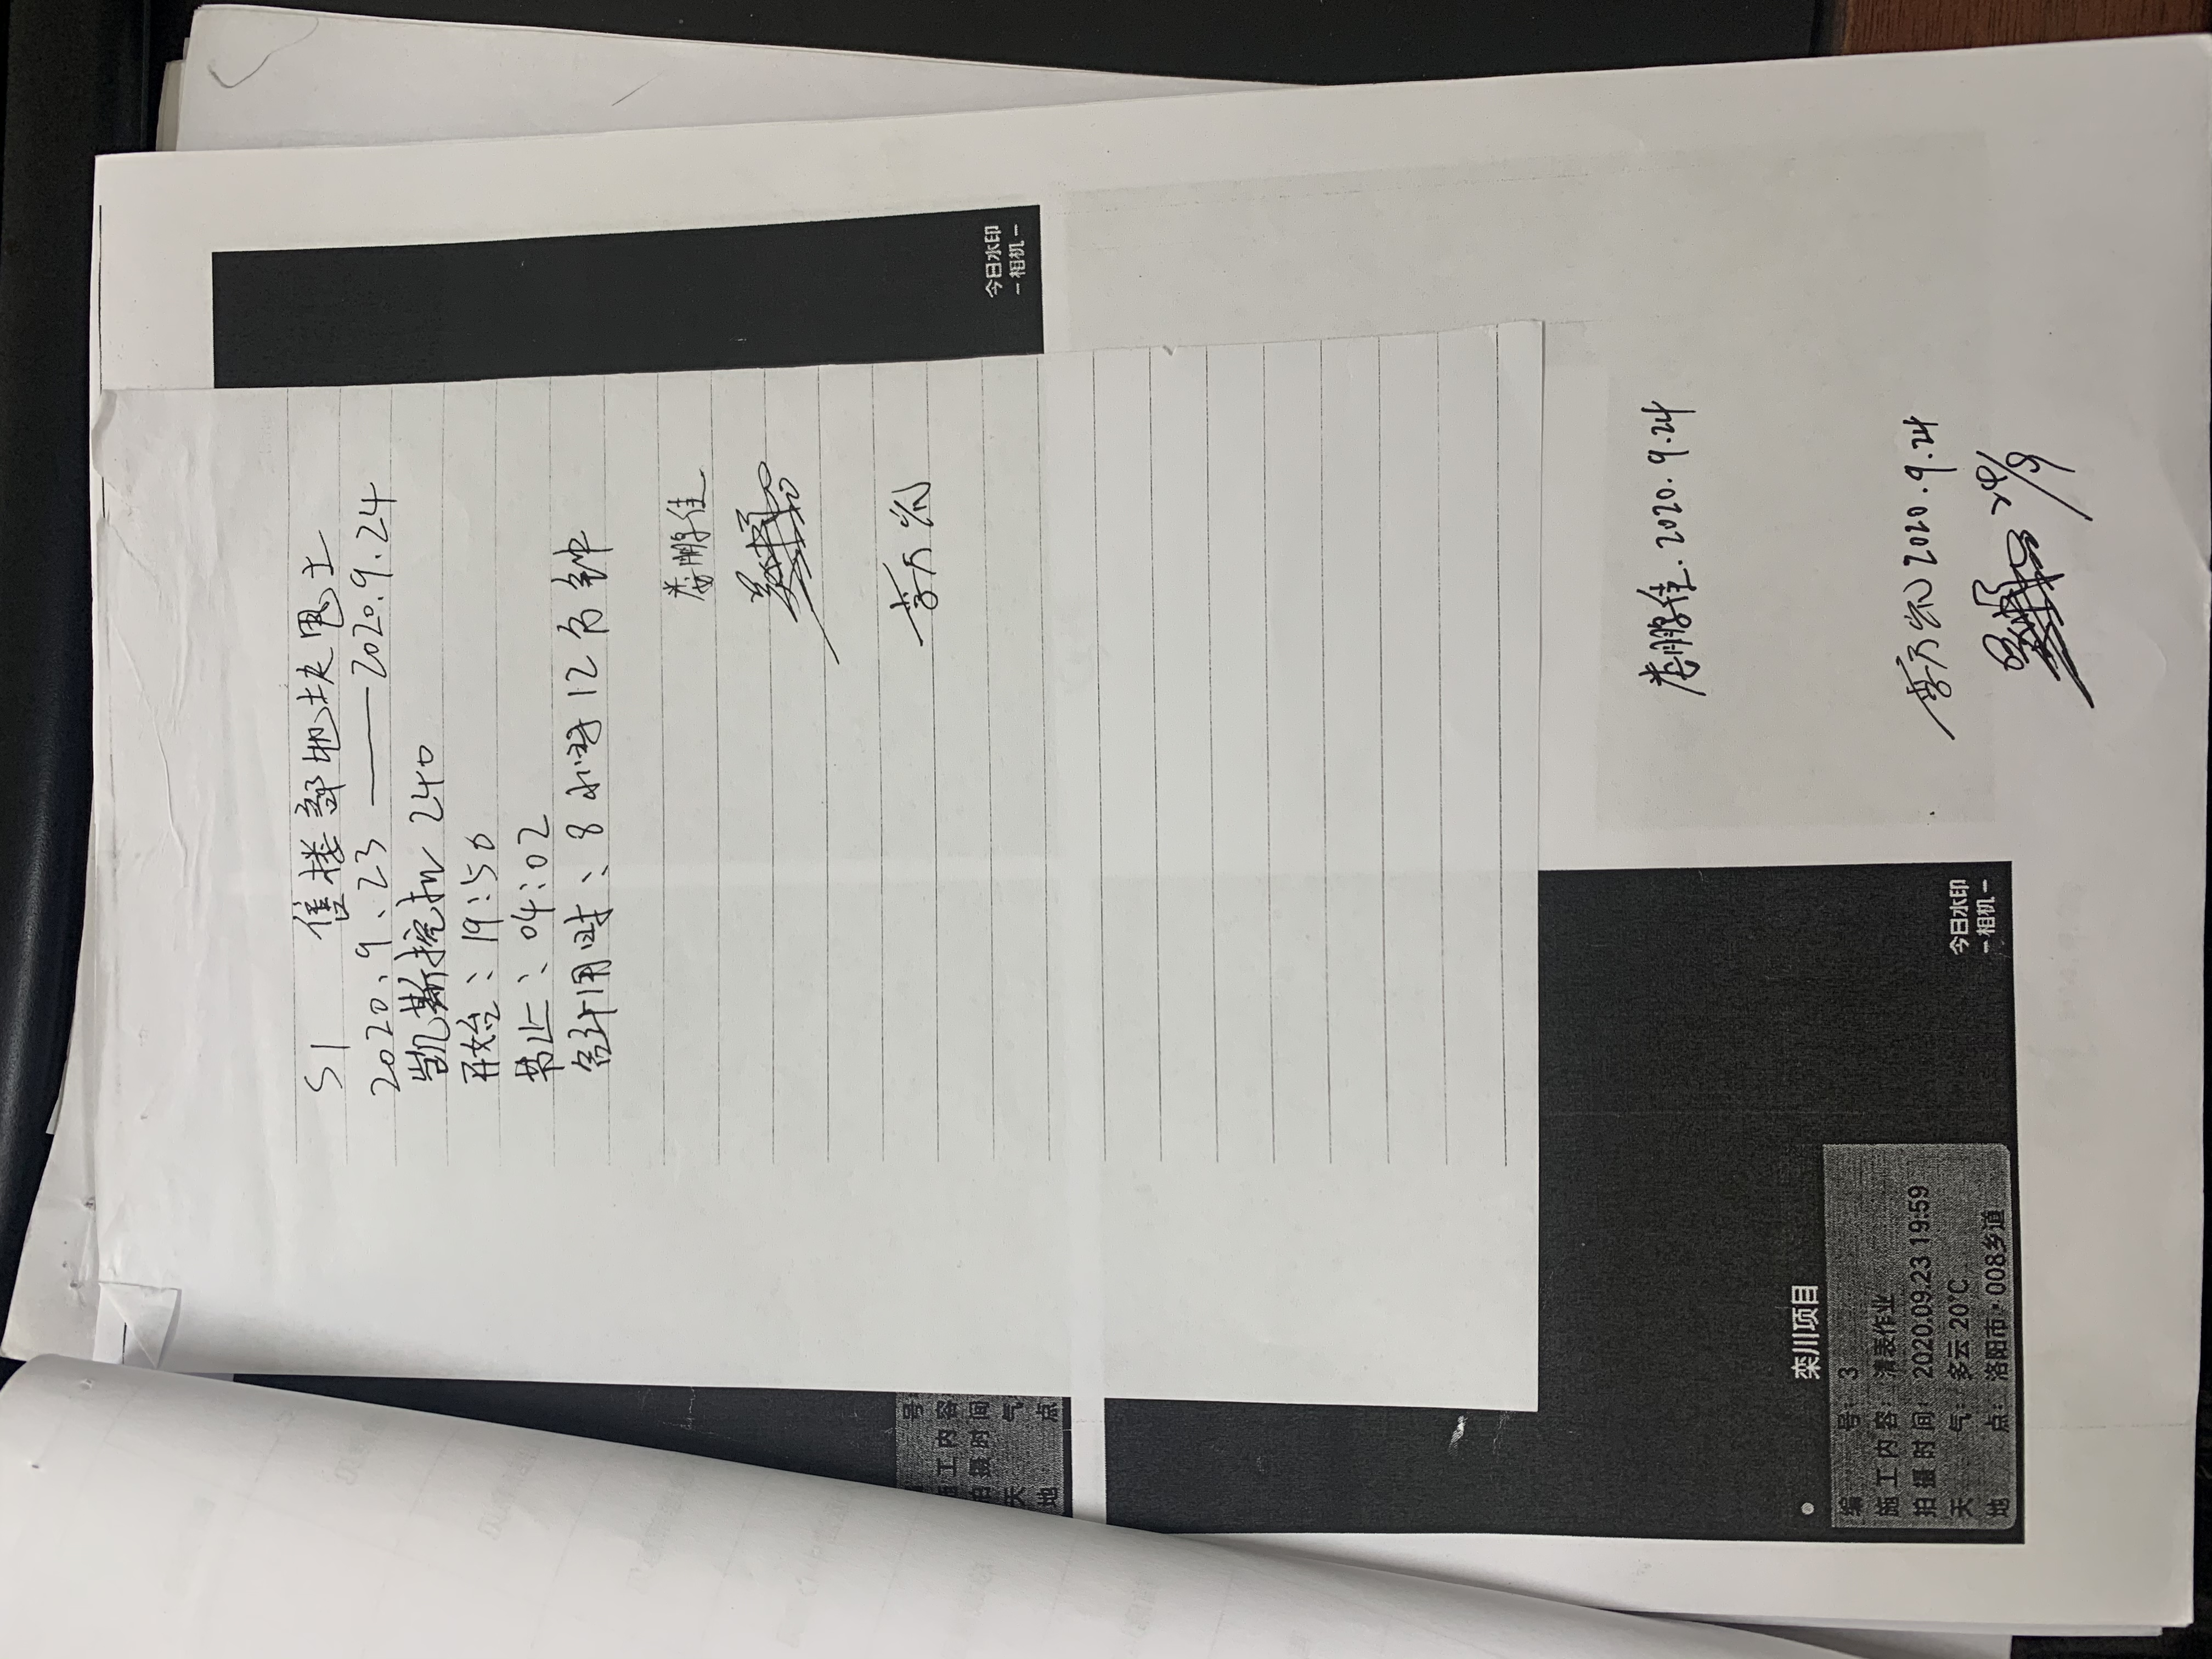 S1 售楼部地块甩土
2020.9.23——2020.9.24
凯斯挖机 240
开始:19:50
禁止:04:02
合计用时:8小时12分钟
娄鹏佳
今日水印
-相机-
号
施工内容
拍摄时间
天 气
地 点
娄鹏佳.2020.9.24
2020.9.24
今日水印
-相机-
栾川项目
编 号:3
施工内容:清表作业
拍摄时间:2020.09.23 19:59
天 气:多云 20℃
地 点:洛阳市·008乡道